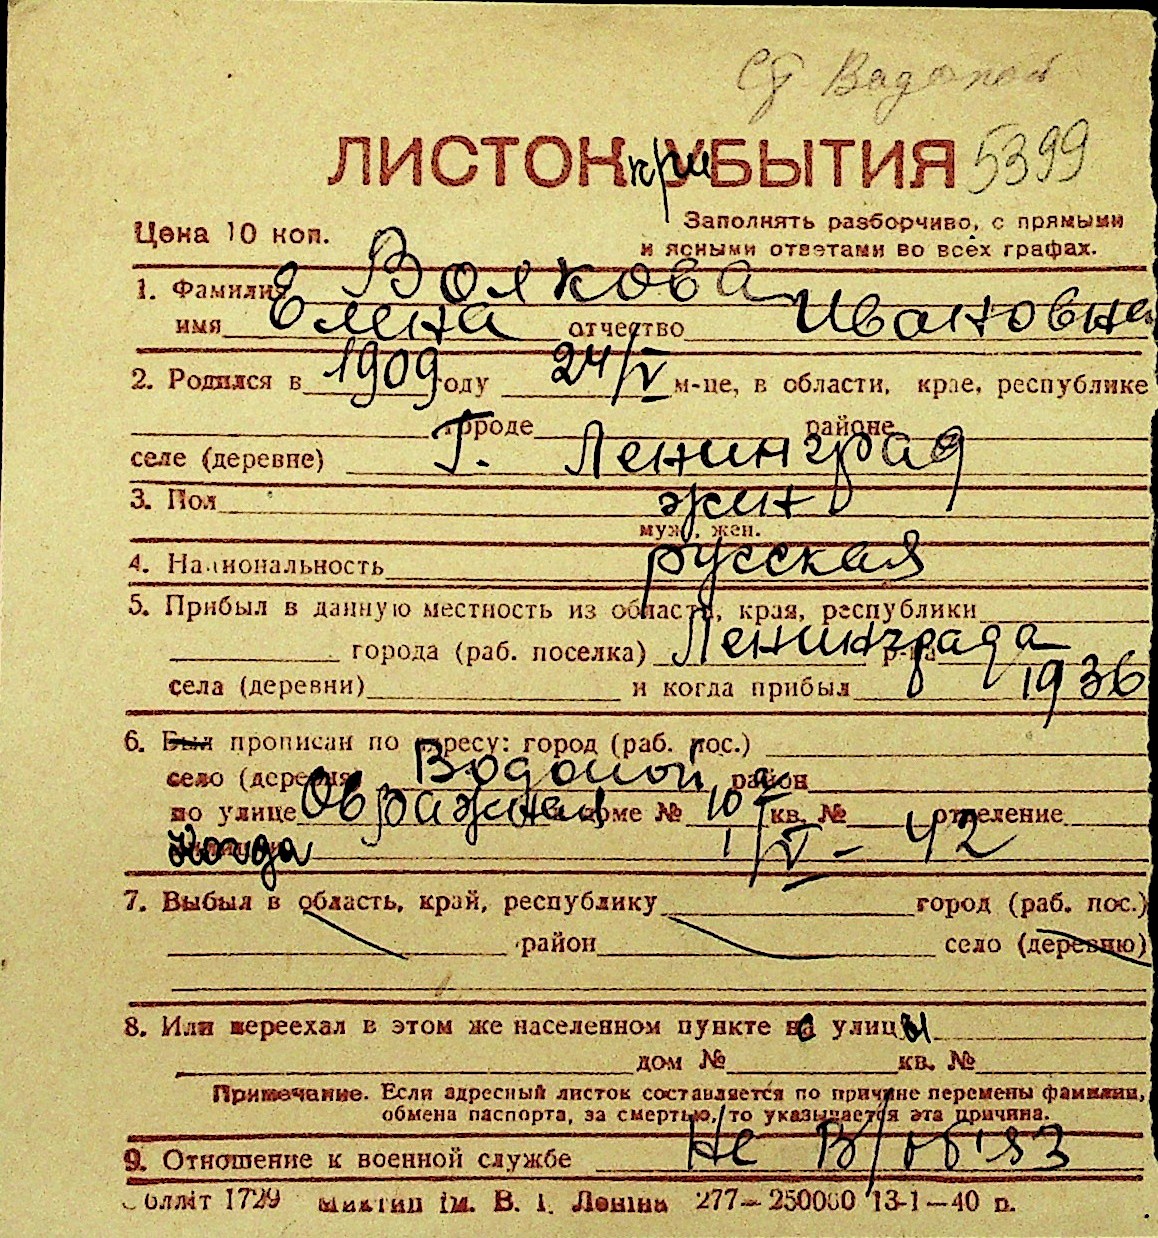 Ст Водопой
ЛИСТОК при УБЫТИЯ 5399
Цена 10 коп.
Заполнять разборчиво, с прямыми
и ясными ответами во всех графах.
1. Фамилия Волкова
имя Елена отчество Ивановна
2. Родился в 1909 году 24/V м-це, в области, крае, республике
городе районе
селе (деревне) г. Ленинград
3. Пол жен
муж., жен.
4. Национальность русская
5. Прибыл в данную местность из области, края, республики
города (раб. поселка) Ленинграда р-на
села (деревни) и когда прибыл 1936
6. Был прописан по адресу: город (раб. пос.)
село (деревня) Водопой район
по улице Овражная доме № 10 кв. № отделение
Когда 1/VI - 42
7. Выбыл в область, край, республику город (раб. пос.)
район село (деревню)
8. Или переехал в этом же населенном пункте с улицы
дом № кв. №
Примечание. Если адресный листок составляется по причине перемены фамилии,
обмена паспорта, за смертью, то указывается эта причина.
9. Отношение к военной службе не в/обяз
Облліт 1729 ім. В. І. Леніна 277—250000 13-1—40 р.